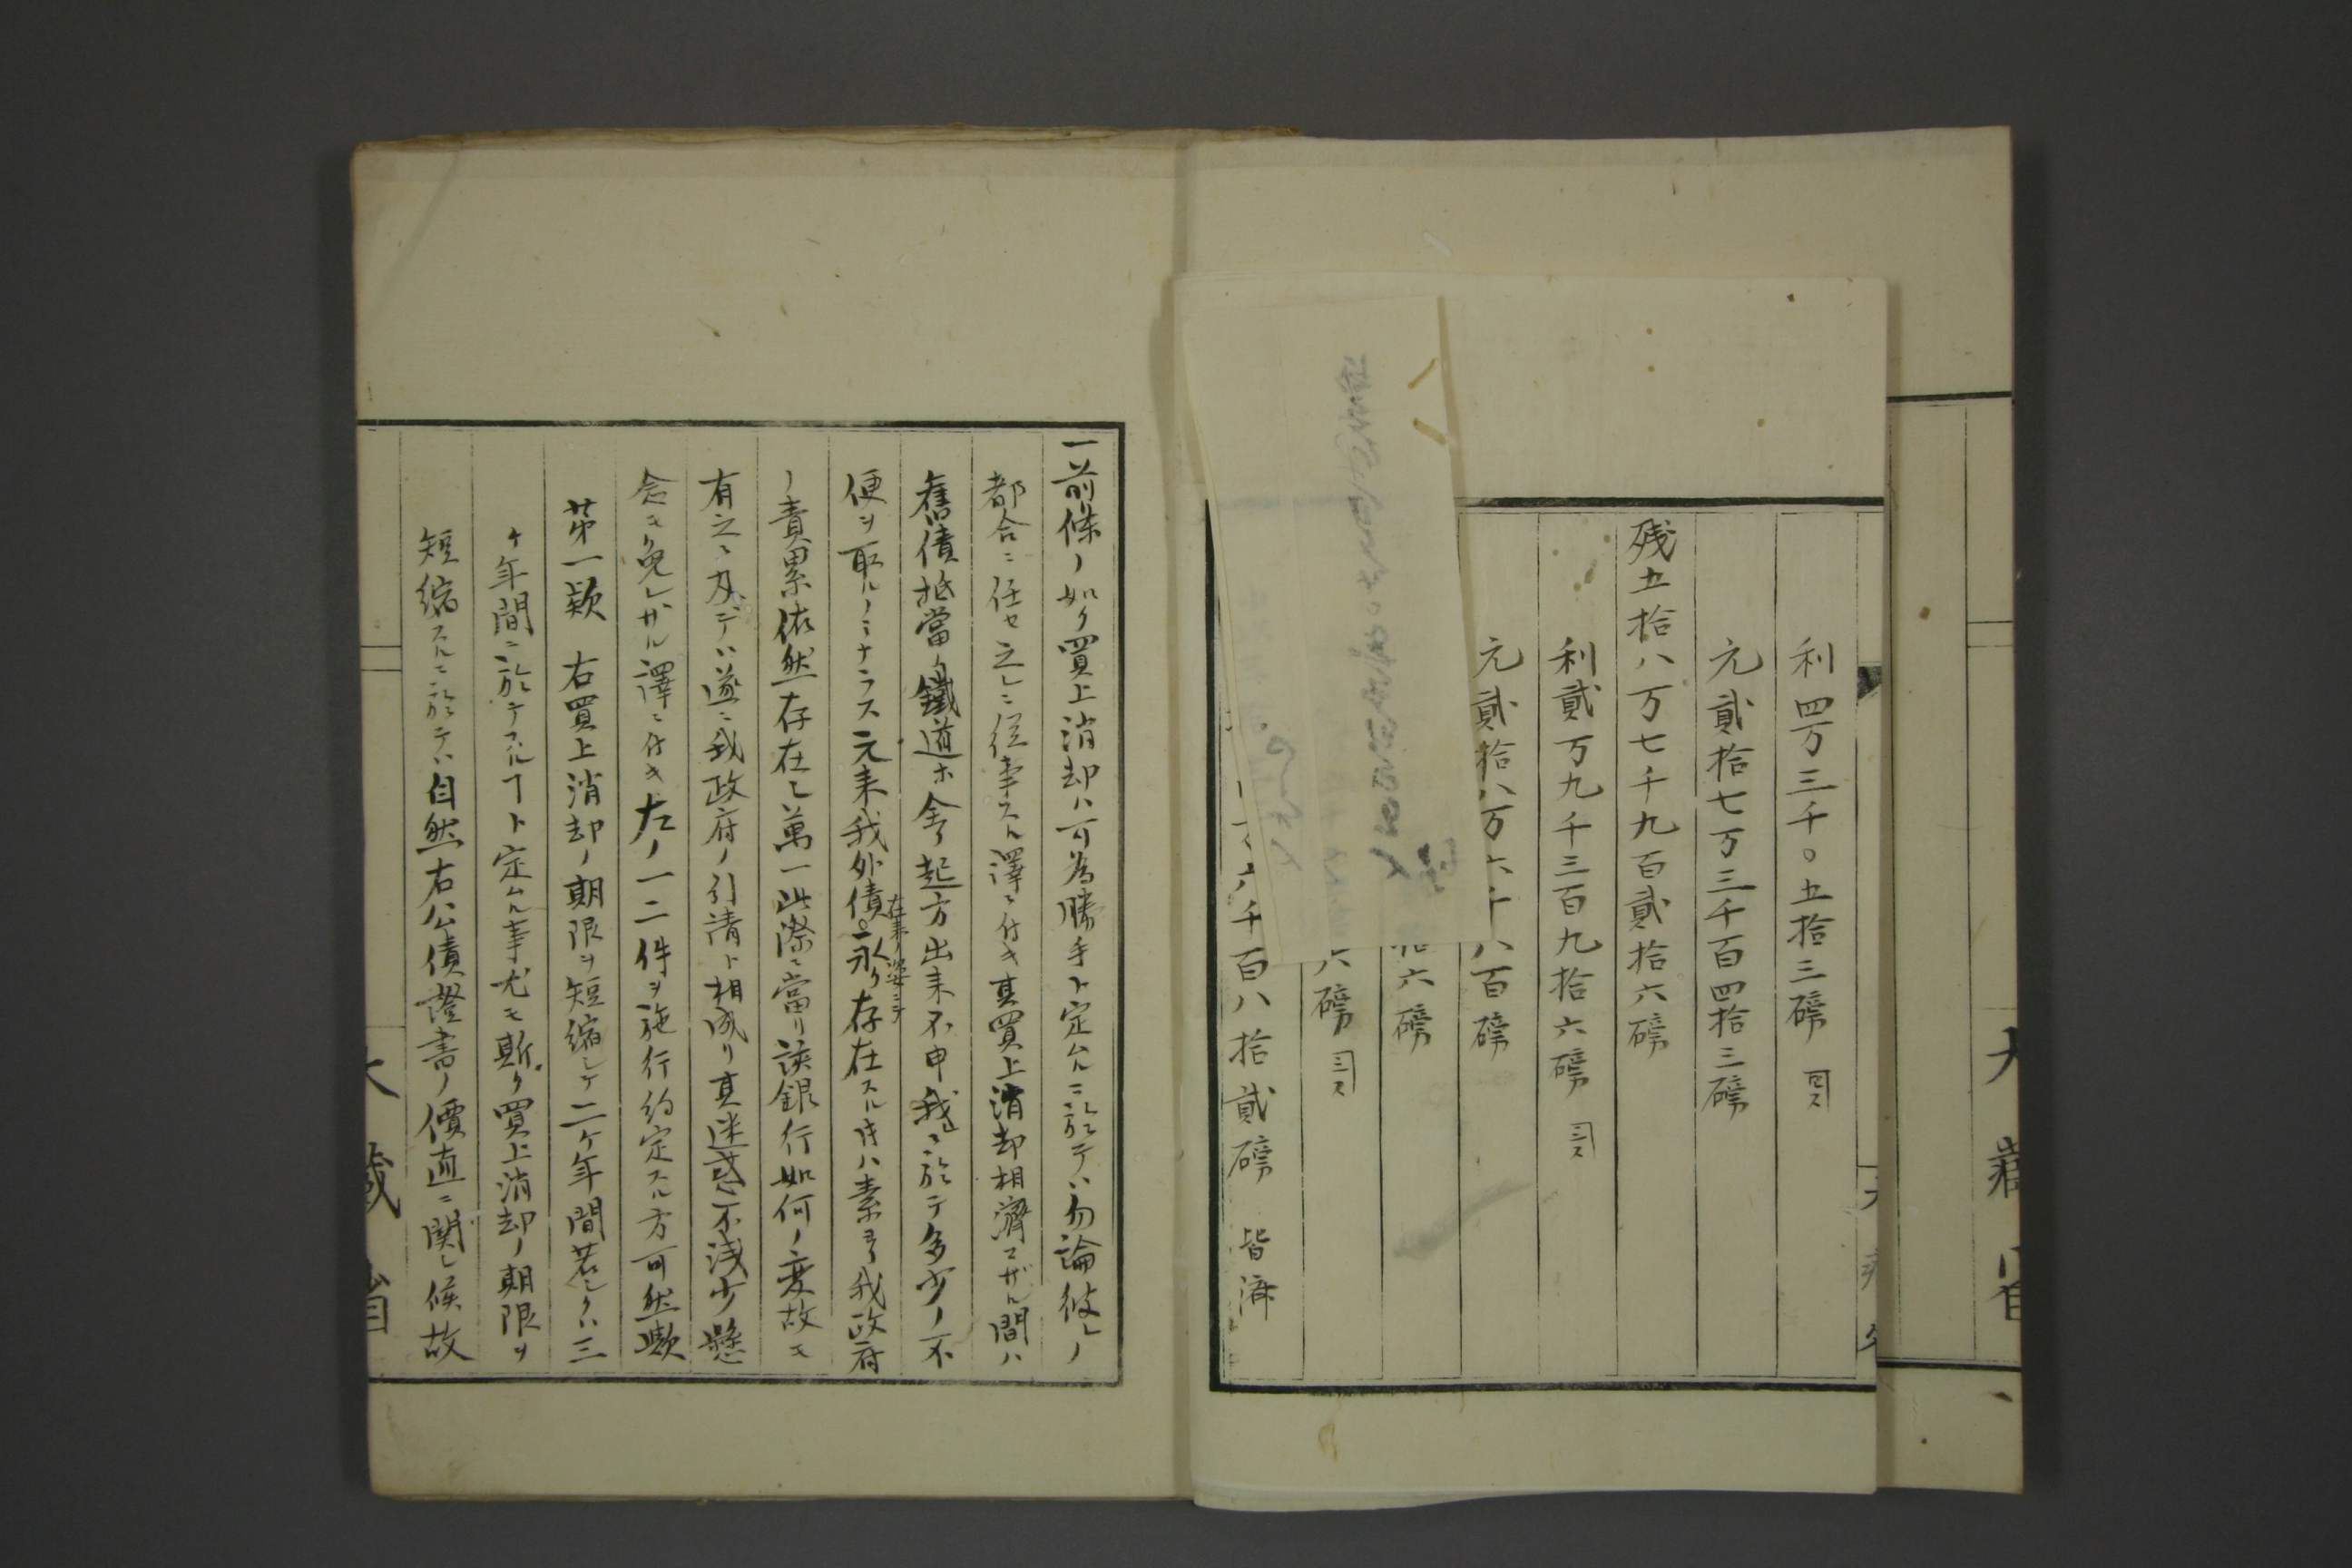 利四万三千〇五拾三磅
元貳拾七万三千百四拾三磅
残五拾八万七千九百貳拾六磅
利貳万九千三百九拾六磅
元貳拾八万六千八百磅
拾六磅
六磅
六千百八拾貳磅 皆済
大蔵省
一前條ノ如ク買上消却ハ可為勝手ト定ムルニ於テハ勿論彼レノ
都合ニ任セ之レニ従事スル譯ニ付キ其買上消却相濟マザル間ハ
舊債抵當ノ鐵道ホ金ク起方出来不申我ニ於テ多少ノ不
便ヲ取ルノミナラス元来我外債在来ノ姿ニテ永ク存在スル時ハ素ヨリ我政府
ノ責累依然存在シ萬一此際ニ當リ該銀行如何ノ変故モ
有之ニ及デハ遂ニ我政府ノ引請ト相成リ其迷惑不浅少懸
念モ免レザル譯ニ付キ左ノ一二件ヲ施行約定スル方可然歟
第一款 右買上消却ノ期限ヲ短縮シテ二ケ年間若シクハ三
ケ年間ニ於テスルヿト定ムル事尤モ斯ク買上消却ノ期限ヲ
短縮スルニ於テハ自然右公債證書ノ價直ニ関シ候故
大蔵省